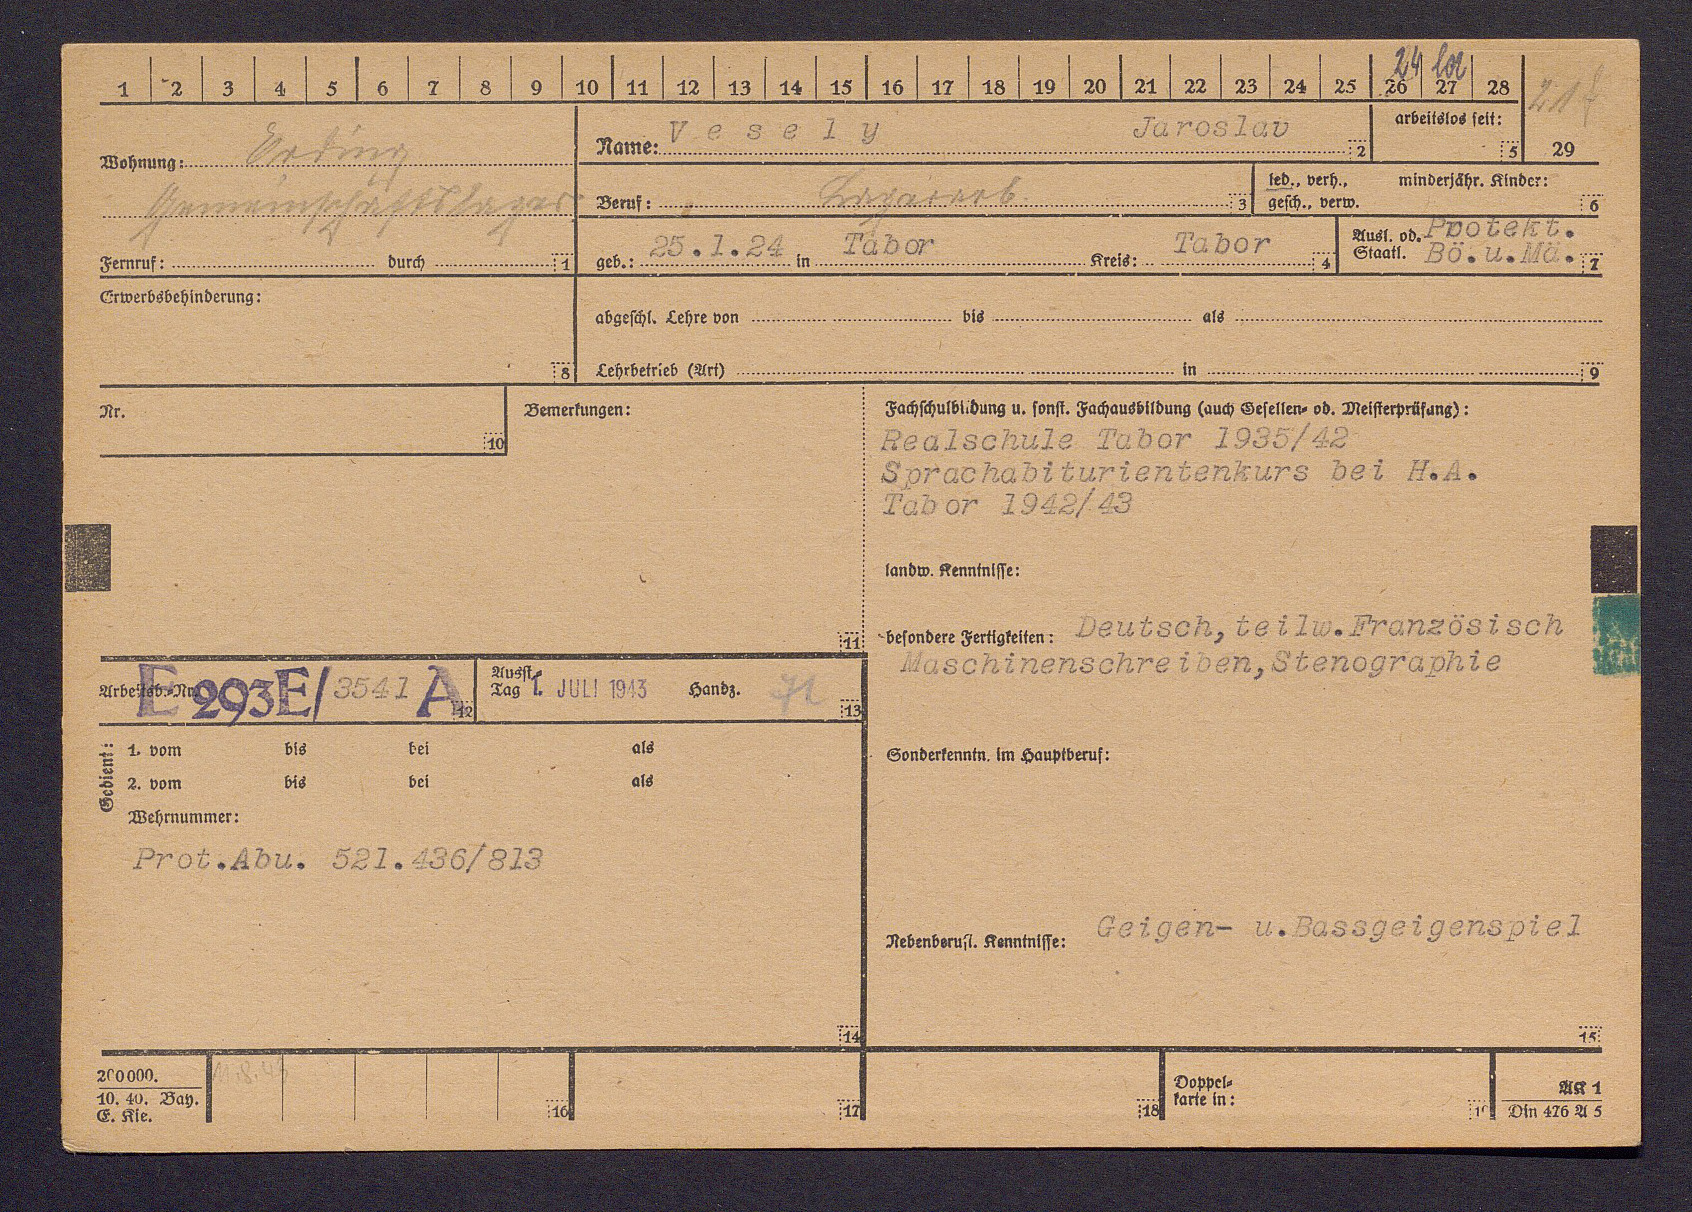 1 2 3 4 5 6 7 8 9 10 11 12 13 14 15 16 17 18 19 20 21 22 23 24 25 26 27 28
24
Wohnung: Erding
Gemeinschaftslager
Fernruf: durch 1
Name: Vesely Jaroslav 2
arbeitslos seit: 5
29
Beruf: 3
led., verh., minderjähr. Kinder:
gesch., verw. 6
geb.: 25.1.24 in Tabor Kreis: Tabor 4
Ausl. od. Protekt.
Staatl. Bö.u.Mä. 7
Erwerbsbehinderung:
8
abgeschl. Lehre von bis als
Lehrbetrieb (Art) in 9
Nr.
10
Bemerkungen:
11
Fachschulbildung u. sonst. Fachausbildung (auch Gesellen- od. Meisterprüfung):
Realschule Tabor 1935/42
Sprachabiturientenkurs bei H.A.
Tabor 1942/43
landw. Kenntnisse:
besondere Fertigkeiten: Deutsch, teilw. Französisch
Maschinenschreiben, Stenographie
Arbeitsb.-Nr. E 293E/3541 A 12
Ausst.
Tag 1. JULI 1943 Handz. 13
Gedient:
1. vom bis bei als
2. vom bis bei als
Wehrnummer:
Prot.Abu. 521.436/813
14
Sonderkenntn. im Hauptberuf:
Nebenberufl. Kenntnisse: Geigen- u.Bassgeigenspiel
15
200000.
10. 40. Bay.
E. Kie.
16
17
18
Doppel-
karte in:
19
AK 1
Din 476 A 5